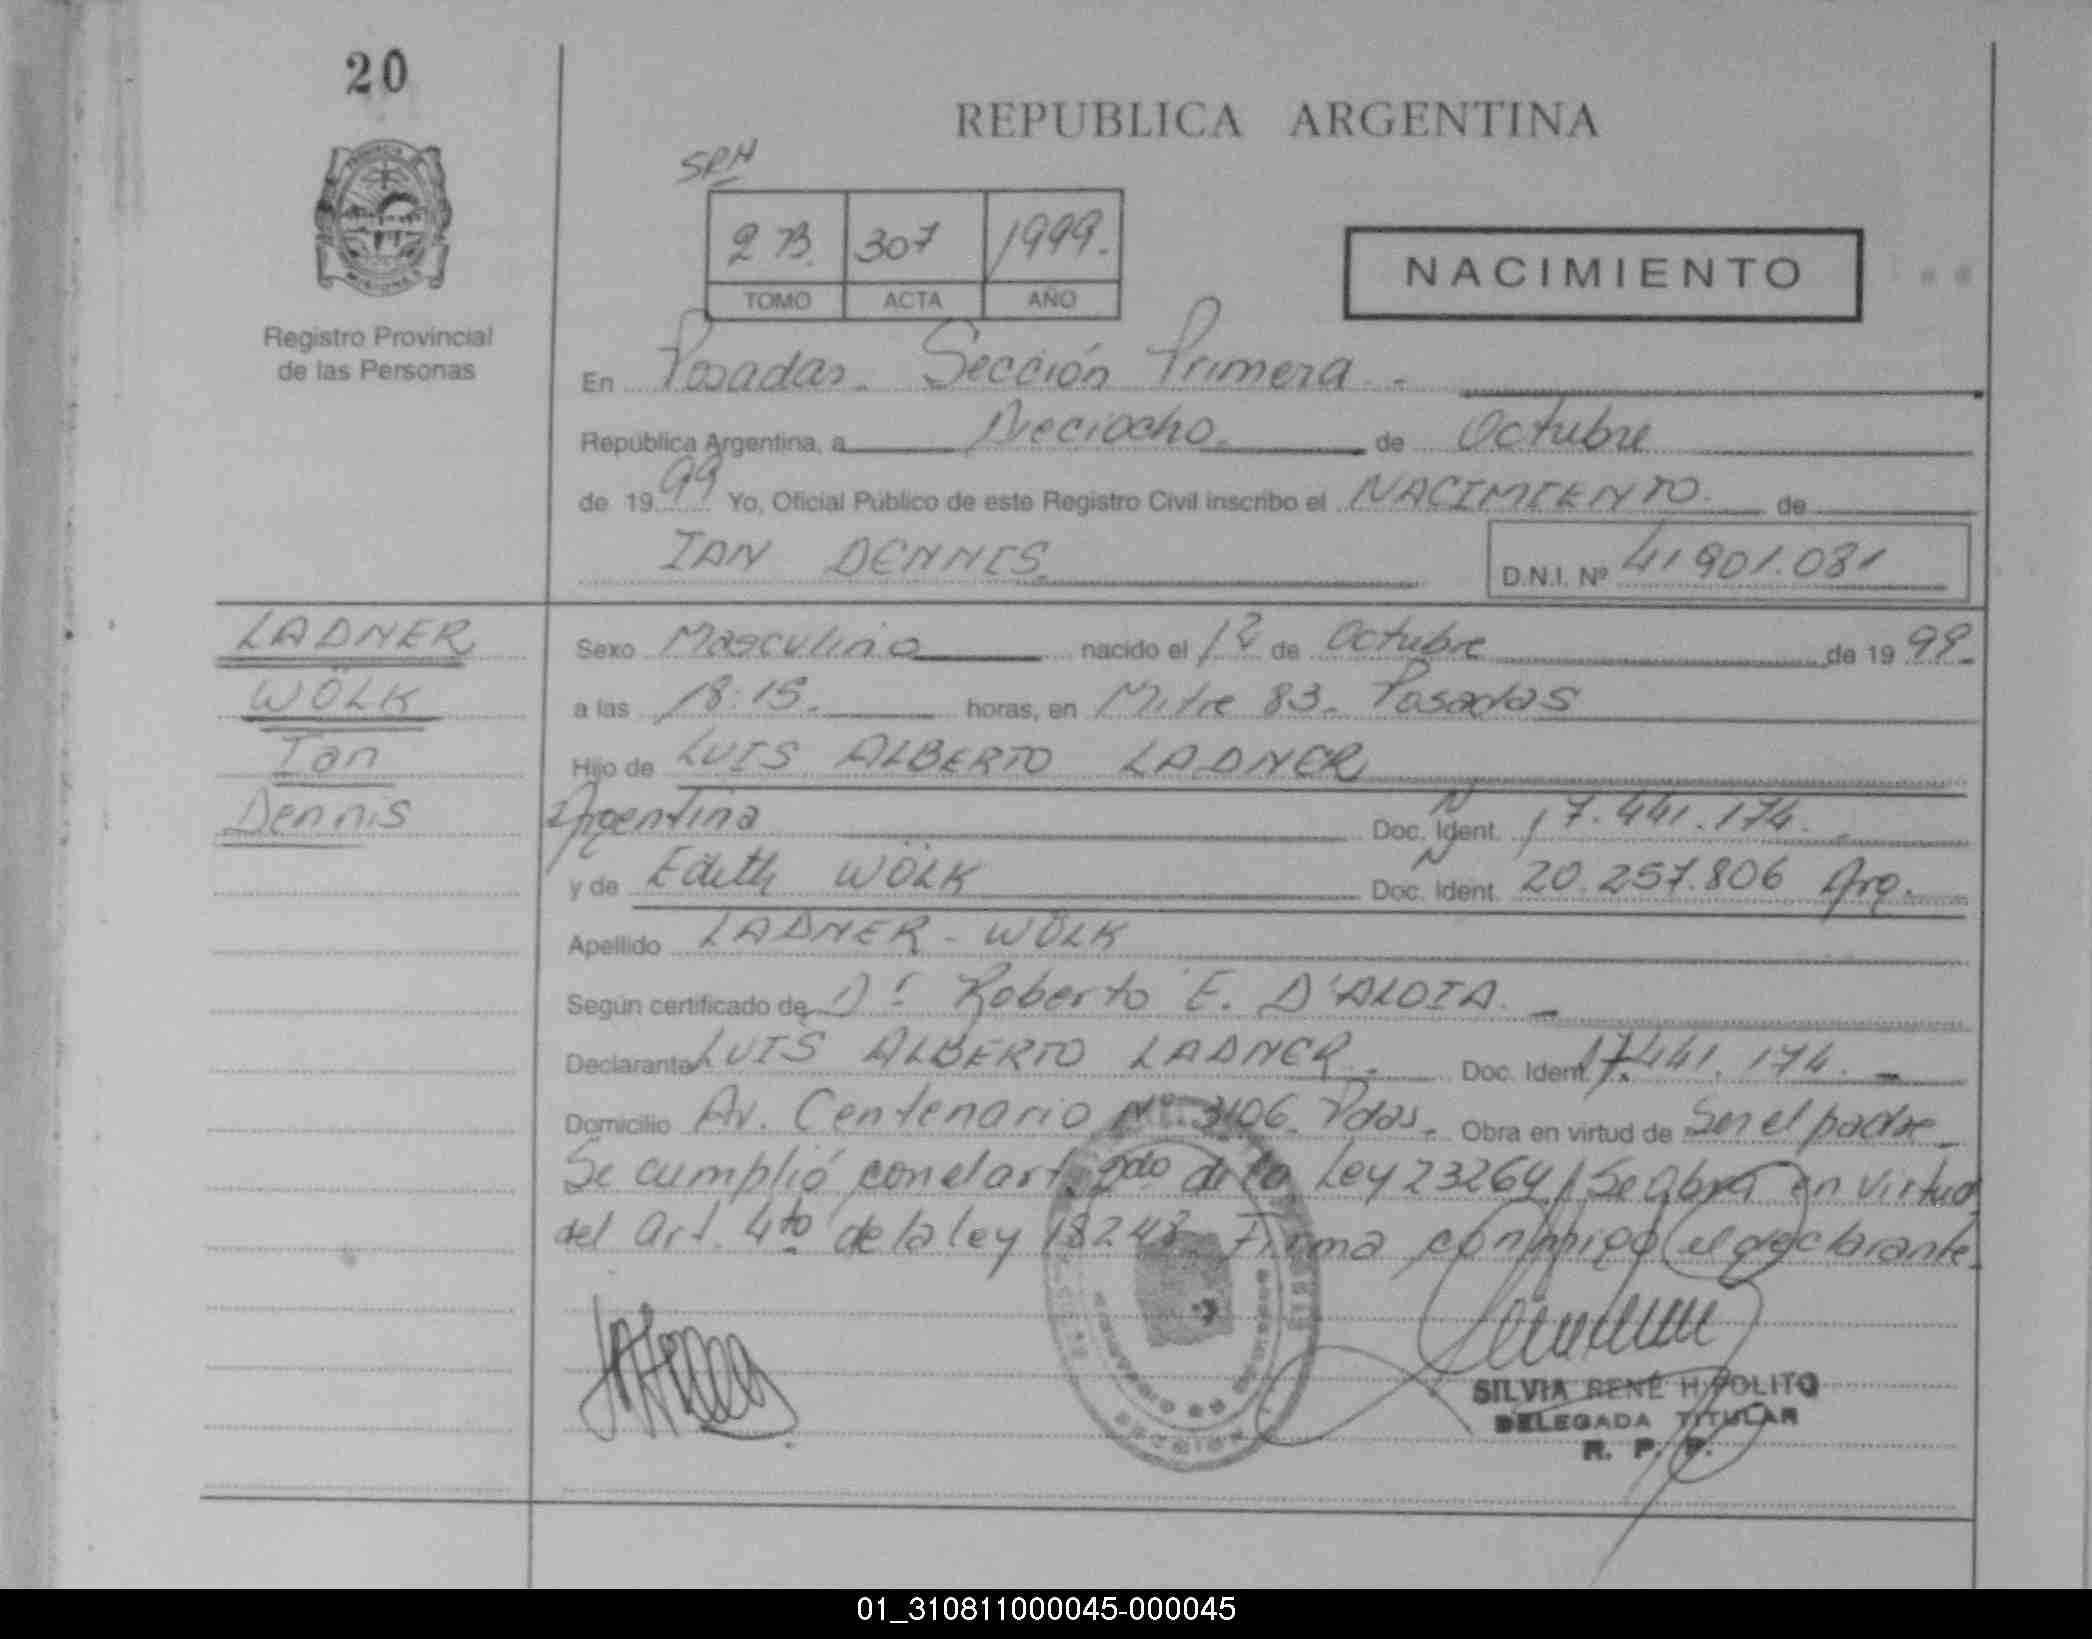 20
REPUBLICA ARGENTINA
2 B. 307 1999.
TOMO ACTA AÑO
NACIMIENTO
Registro Provincial
de las Personas
En Posadas. Sección Primera.-
República Argentina, a Dieciocho. de Octubre
de 1999 Yo, Oficial Público de este Registro Civil inscribo el NACIMIENTO. de
IAN DENNIS. D.N.I. Nº 41901.081
LADNER
WÖLK
Ian
Dennis
Sexo Masculino nacido el de Octubre de 1999.
a las 18:15. horas, en Mitre 83. Posadas
Hijo de LUIS ALBERTO LADNER
Argentina Doc. Ident. 17.441.174.
y de Edith WÖLK Doc. Ident. 20.257.806 Arg.
Apellido LADNER - WÖLK
Según certificado de Dr Roberto E. D'ALOIA.
Declarante LUIS ALBERTO LADNER. Doc. Ident. 17.441.174.
Domicilio Av. Centenario Nº 3106. Pdas. Obra en virtud de Ser el padre
Se cumplió con el art. 2do de la Ley 23264/ Se obra en virtud
del Art. 4to de la ley 18248. Firma conmigo el declarante.
SILVIA RENÉ HIPOLITO
DELEGADA TITULAR
R. P. P.
01_310811000045-000045